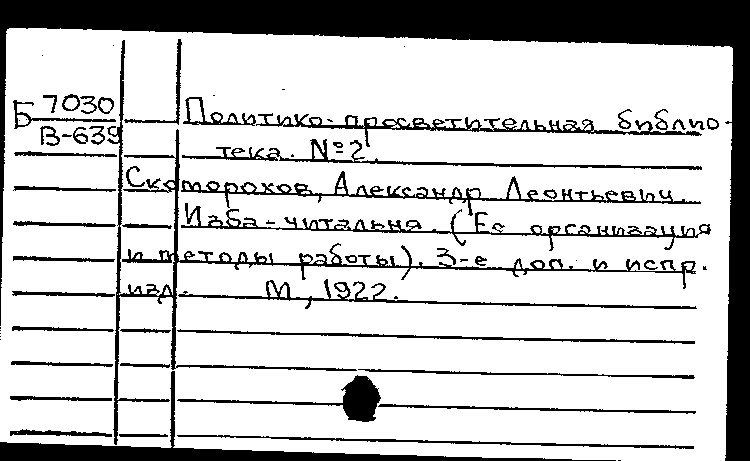 Б 7030
В-639
Политико-просветительная библио-
тека. №2.
Скоморохов, Александр Леонтьевич.
Изба-читальня. (Ее организация
и методы работы). 3-е доп. и испр.
изд. М., 1922.